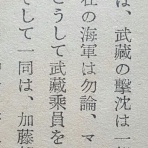 は、武藏の擊沈は一
社の海軍は勿論、マ
どうして武藏乗員を
そして一同は、加藤